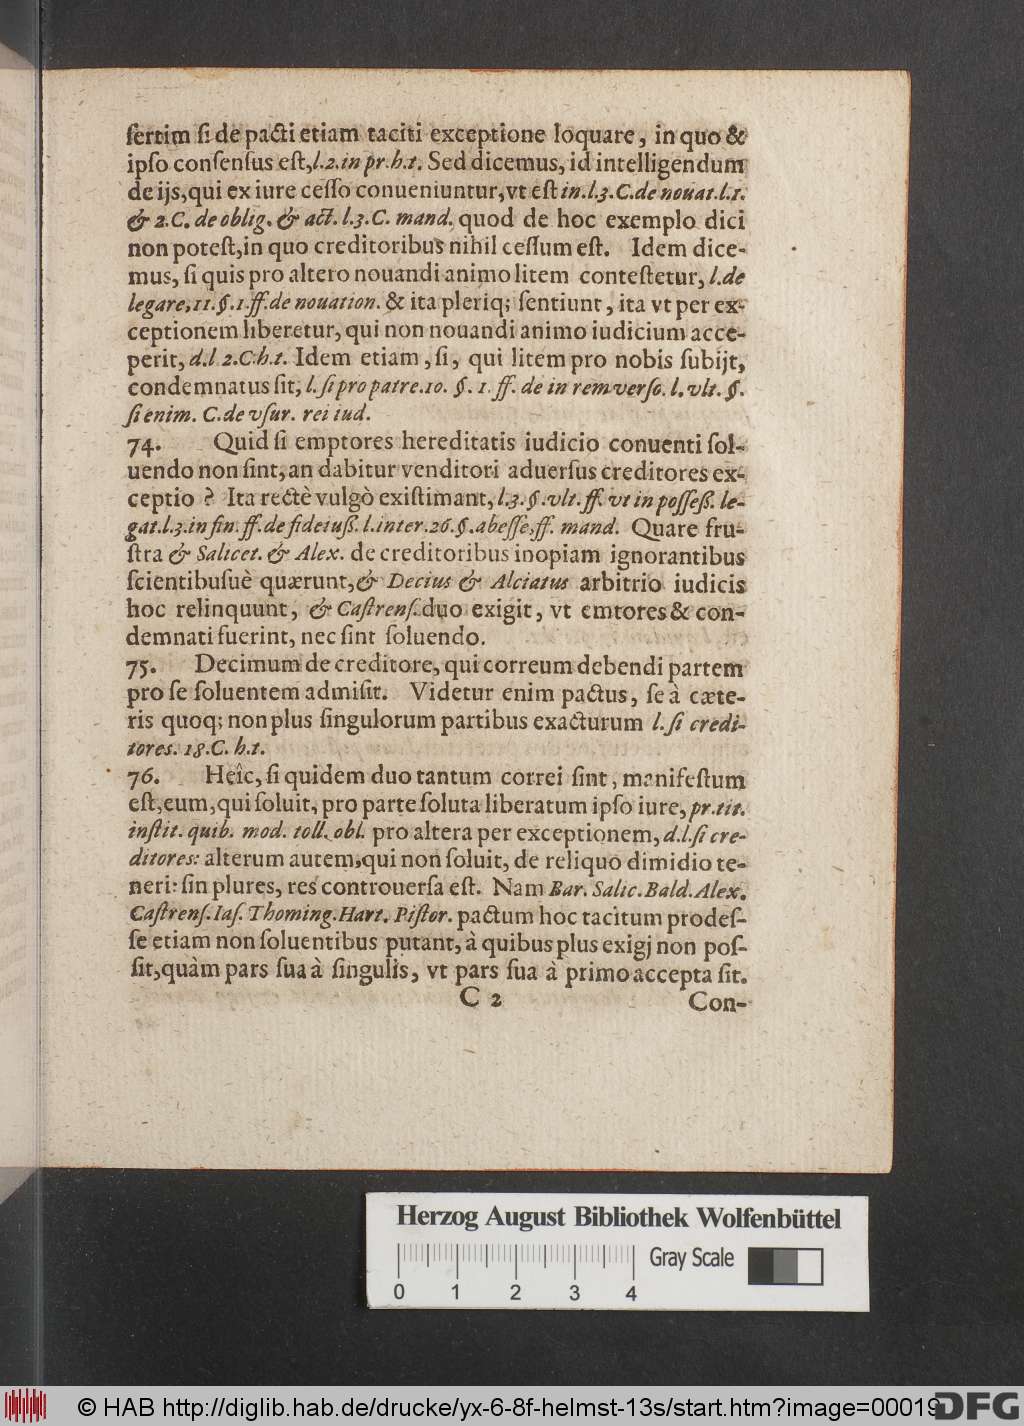 ſertim ſi de pacti etiam taciti exceptione loquare, in quo &
ipſo conſenſus eſt, l.2. in pr. h.t. Sed dicemus, id intelligendum
de ijs, qui ex iure ceſſo conueniuntur, vt eſt in. l.3. C. de nouat. l.1.
& 2. C. de oblig. & act. l.3. C. mand. quod de hoc exemplo dici
non poteſt, in quo creditoribus nihil ceſſum eſt. Idem dice-
mus, ſi quis pro altero nouandi animo litem conteſtetur, l. de
legare, 11. §. 1. ff. de nouation. & ita pleriq; ſentiunt, ita vt per ex-
ceptionem liberetur, qui non nouandi animo iudicium acce-
perit, d.l 2. C. h.t. Idem etiam, ſi, qui litem pro nobis ſubijt,
condemnatus ſit, l. ſi pro patre. 10. §. 1. ff. de in rem verſo. l. vlt. §.
ſi enim. C. de vſur. rei iud.
74. Quid ſi emptores hereditatis iudicio conuenti ſol-
uendo non ſint, an dabitur venditori aduerſus creditores ex-
ceptio? Ita rectè vulgò exiſtimant, l.3. §. vlt. ff. vt in poſſeß. le-
gat. l.3. in fin. ff. de fideiuß. l. inter. 26. §. abeſſe, ff. mand. Quare fru-
ſtra & Salicet. & Alex. de creditoribus inopiam ignorantibus
ſcientibuſuè quærunt, & Decius & Alciatus arbitrio iudicis
hoc relinquunt, & Caſtrenſ. duo exigit, vt emtores & con-
demnati fuerint, nec ſint ſoluendo.
75. Decimum de creditore, qui correum debendi partem
pro ſe ſoluentem admiſit. Videtur enim pactus, ſe à cæte-
ris quoq; non plus ſingulorum partibus exacturum l. ſi credi-
tores. 18. C. h.t.
76. Heîc, ſi quidem duo tantum correi ſint, manifeſtum
eſt, eum, qui ſoluit, pro parte ſoluta liberatum ipſo iure, pr. tit.
inſtit. quib. mod. toll. obl. pro altera per exceptionem, d.l. ſi cre-
ditores: alterum autem, qui non ſoluit, de reliquo dimidio te-
neri: ſin plures, res controuerſa eſt. Nam Bar. Salic. Bald. Alex.
Caſtrenſ. Iaſ. Thoming. Hart. Piſtor. pactum hoc tacitum prodeſ-
ſe etiam non ſoluentibus putant, à quibus plus exigj non poſ-
ſit, quàm pars ſua à ſingulis, vt pars ſua à primo accepta ſit.
C 2 Con-
Herzog August Bibliothek Wolfenbüttel
Gray Scale
0 1 2 3 4
© HAB http://diglib.hab.de/drucke/yx-6-8f-helmst-13s/start.htm?image=00019
DFG